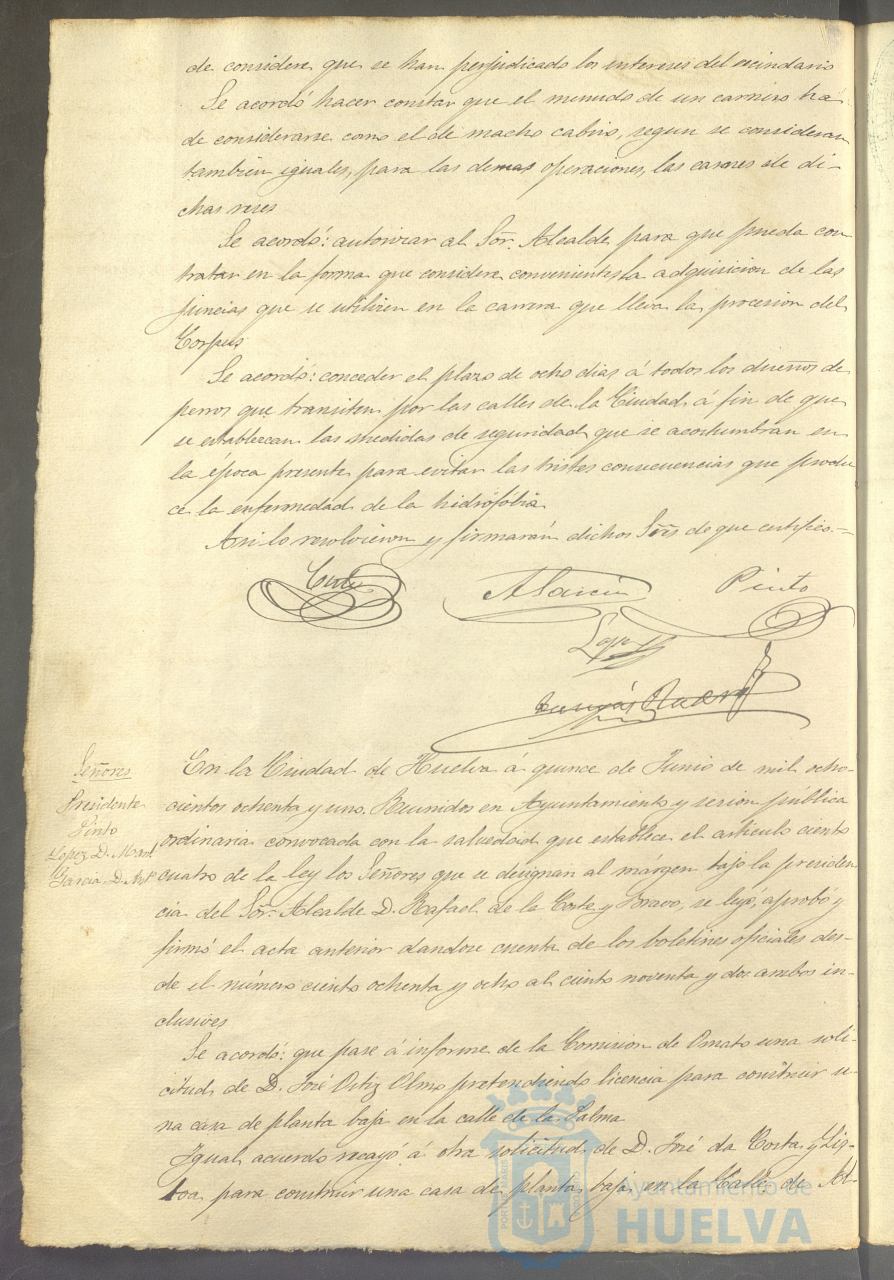 de considere que se han perjudicado los intereses del vecindario
Se acordó hacer constar que el menudo de un carnero ha
de considerarse como el de macho cabrio, segun se consideran
tambien iguales, para las demas operaciones, las carnes de di-
chas reses
Se acordó: autorizar al Sor. Alcalde para que pueda con
tratar en la forma que considere conveniente la adquisicion de las
juncias que se utilizen en la carrera que lleva la procesion del
Corpus
Se acordó: conceder el plazo de ocho dias á todos los dueños de
perros que transiten por las calles de la Ciudad á fin de que
se establezcan las medidas de seguridad que se acostumbran en
la época presente para evitar las tristes consecuencias que produ
ce la enfermedad de la hidrofóbia
Asi lo resolvieron y firmarán dichos Sres de que certifico.=
A Garcia Pinto
Lopez
Señores
Presidente
Pinto
Lopez D. Manl
Garcia D. Ant
En la Ciudad de Huelva á quince de Junio de mil ocho-
cientos ochenta y uno. Reunidos en Ayuntamiento y sesion pública
ordinaria convocada con la salvedad que establece el artículo ciento
cuatro de la ley los Señores que se designan al márgen bajo la presiden
cia del Sor. Alcalde D. Rafael de la Corte y Bravo, se leyó, aprobó y
firmó el acta anterior dandose cuenta de los boletines oficiales des-
de el número ciento ochenta y ocho al ciento noventa y dos ambos in-
clusives
Se acordó: que pase á informe de la Comision de Ornato una soli-
citud de D. José Ortiz Olmo pretendiendo licencia para construir u-
na casa de planta baja en la calle de la Palma
Igual acuerdo recayó á otra solicitud de D. José da Costa y Lis-
boa para construir una casa de planta baja en la Calle de
Ayuntamiento de
HUELVA